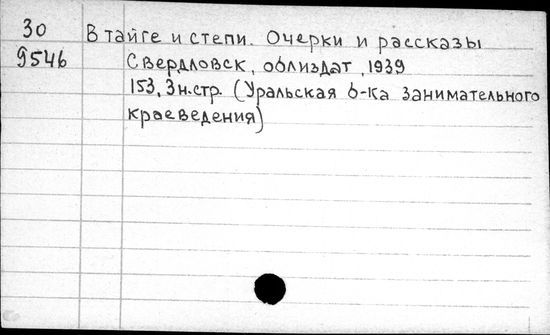 30 В тайге и степи. Очерки и рассказы
9546 Свердловск, облиздат, 1939
153, 3 н.стр. (Уральская б-ка занимательного
краеведения)